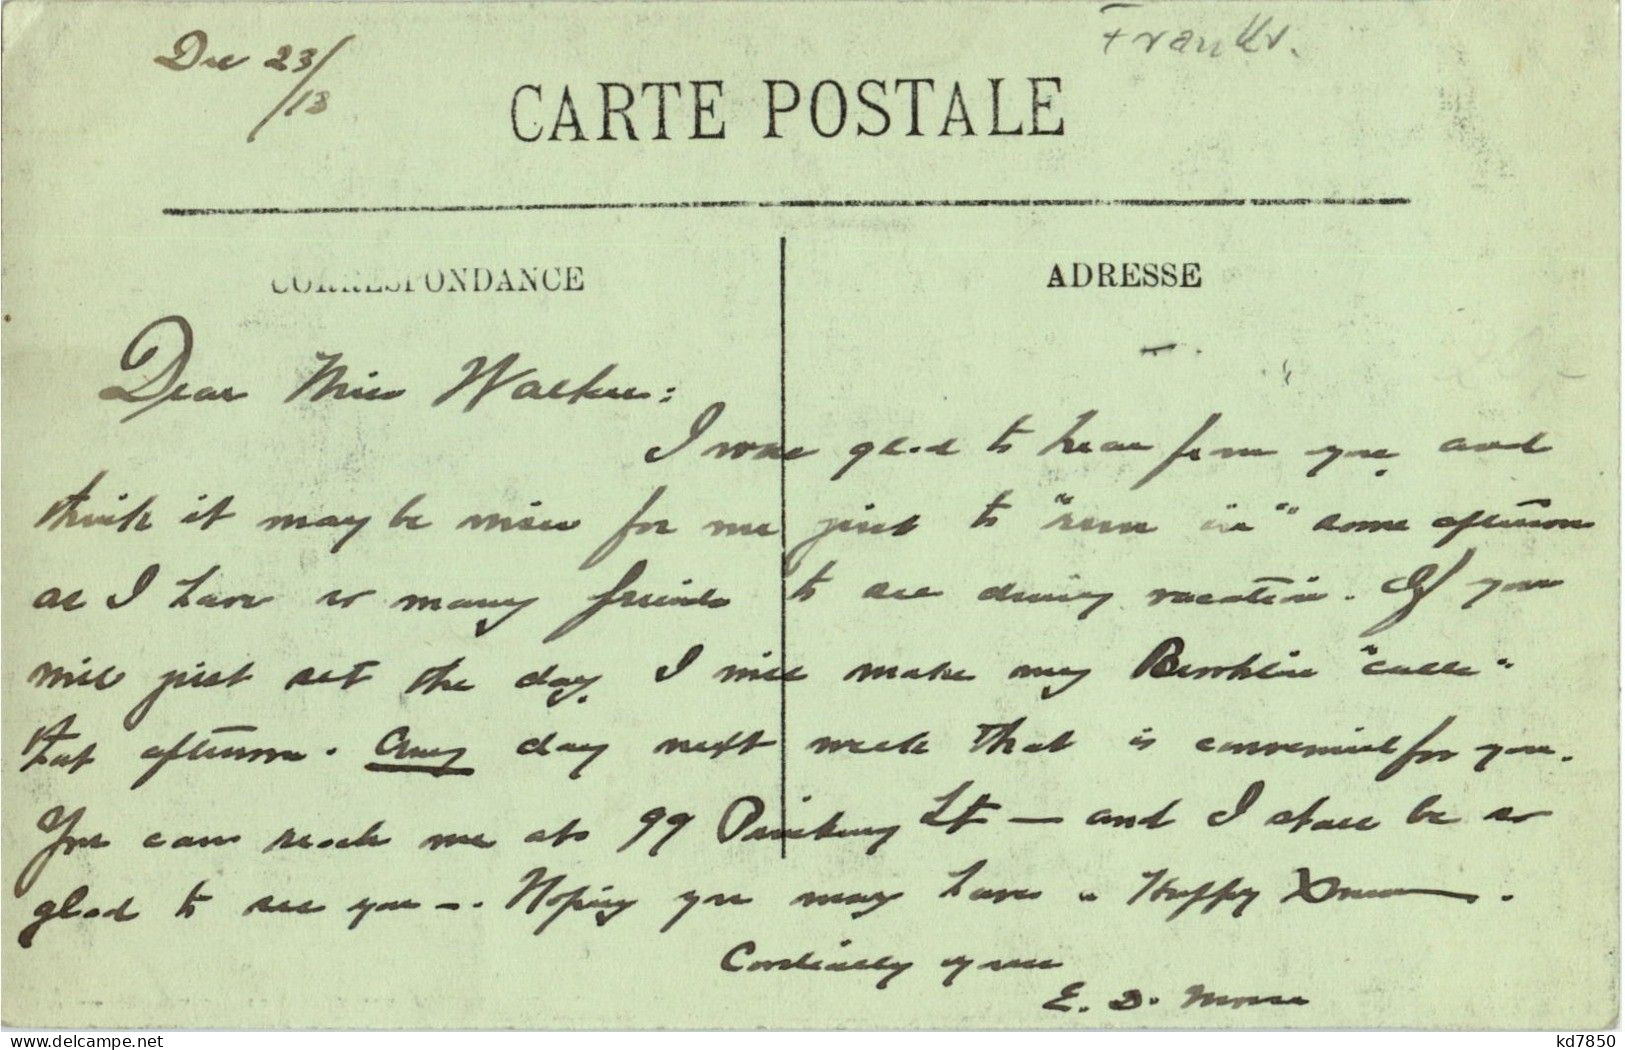 Dec 23/13
Frankr.
CARTE POSTALE
CORRESPONDANCE
ADRESSE
Dear Miss Walker:
I was glad to hear from you, and
think it may be nice for me just to "run in" some afternoon
as I have so many friends to see during vacation. If you
will just set the day, I will make my Brookline "calls"
that afternoon. Any day next week that is convenient for you.
You can reach me at 99 St — and I shall be so
glad to see you —. Hoping you may have a Happy Xmas.
Cordially yours
E. D. Morse
delcampe.net
kd7850